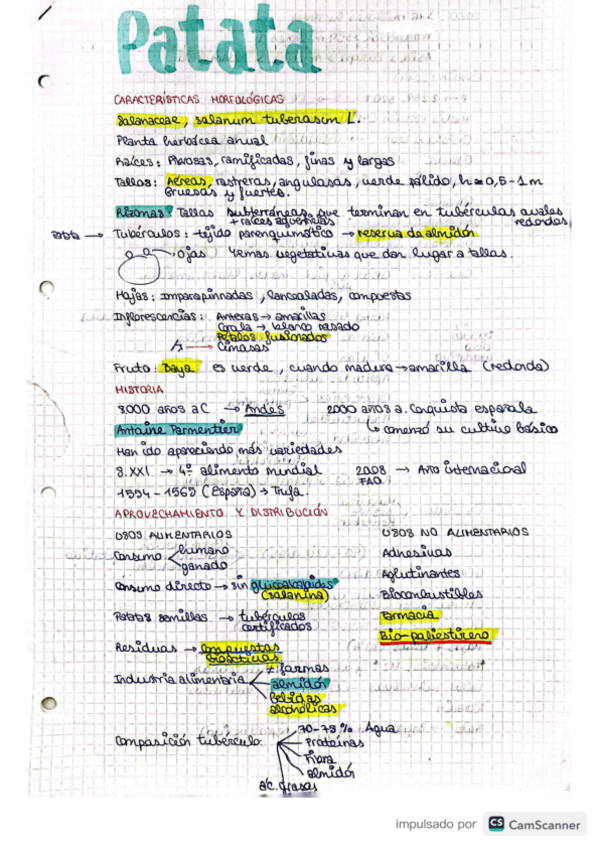 Patata
CARACTERÍSTICAS MORFOLÓGICAS
Solanaceae, solanum tuberosum L.
Planta herbácea anual
Raíces: fibrosas, ramificadas, finas y largas
Tallos: Aéreos, rastreros, angulosos, verde pálido, h=0,5-1m
gruesos y fuertes.
Rizomas: Tallos subterráneos que terminan en tubérculos ovales
+ raíces adventicias redondos
Tubérculos: tejido parenquimático → reserva de almidón
ojos Yemas vegetativas que dan lugar a tallos.
Hojas: imparapinnadas, lanceoladas, compuestas
Inflorescencias: Anteras → amarillas
Corola → blanco rosado
Pétalos fusionados
Cimosas
Fruto: Baya es verde, cuando madura → amarilla (redonda)
HISTORIA
8000 años aC → Andes 2000 años a. Conquista española
Antoine Parmentier ↳ comenzó su cultivo básico
Han ido apareciendo más variedades
S.XXI → 4º alimento mundial 2008 → Año internacional
FAO
(España) → Trufa.
APROVECHAMIENTO Y DISTRIBUCIÓN
USOS ALIMENTARIOS USOS NO ALIMENTARIOS
Consumo humano Adhesivos
ganado
Aglutinantes
Consumo directo → sin glucoalcaloides Biocombustibles
(solanina)
Patatas semillas → tubérculos Farmacia
certificados
Bio-poliestireno
Residuos → compuestos
bioactivos
Industria alimentaria ≠ formas
almidón
bebidas
alcohólicas
Composición tubérculo: 70-78% Agua
Proteínas
Fibra
almidón
ác. grasos
impulsado por CS CamScanner